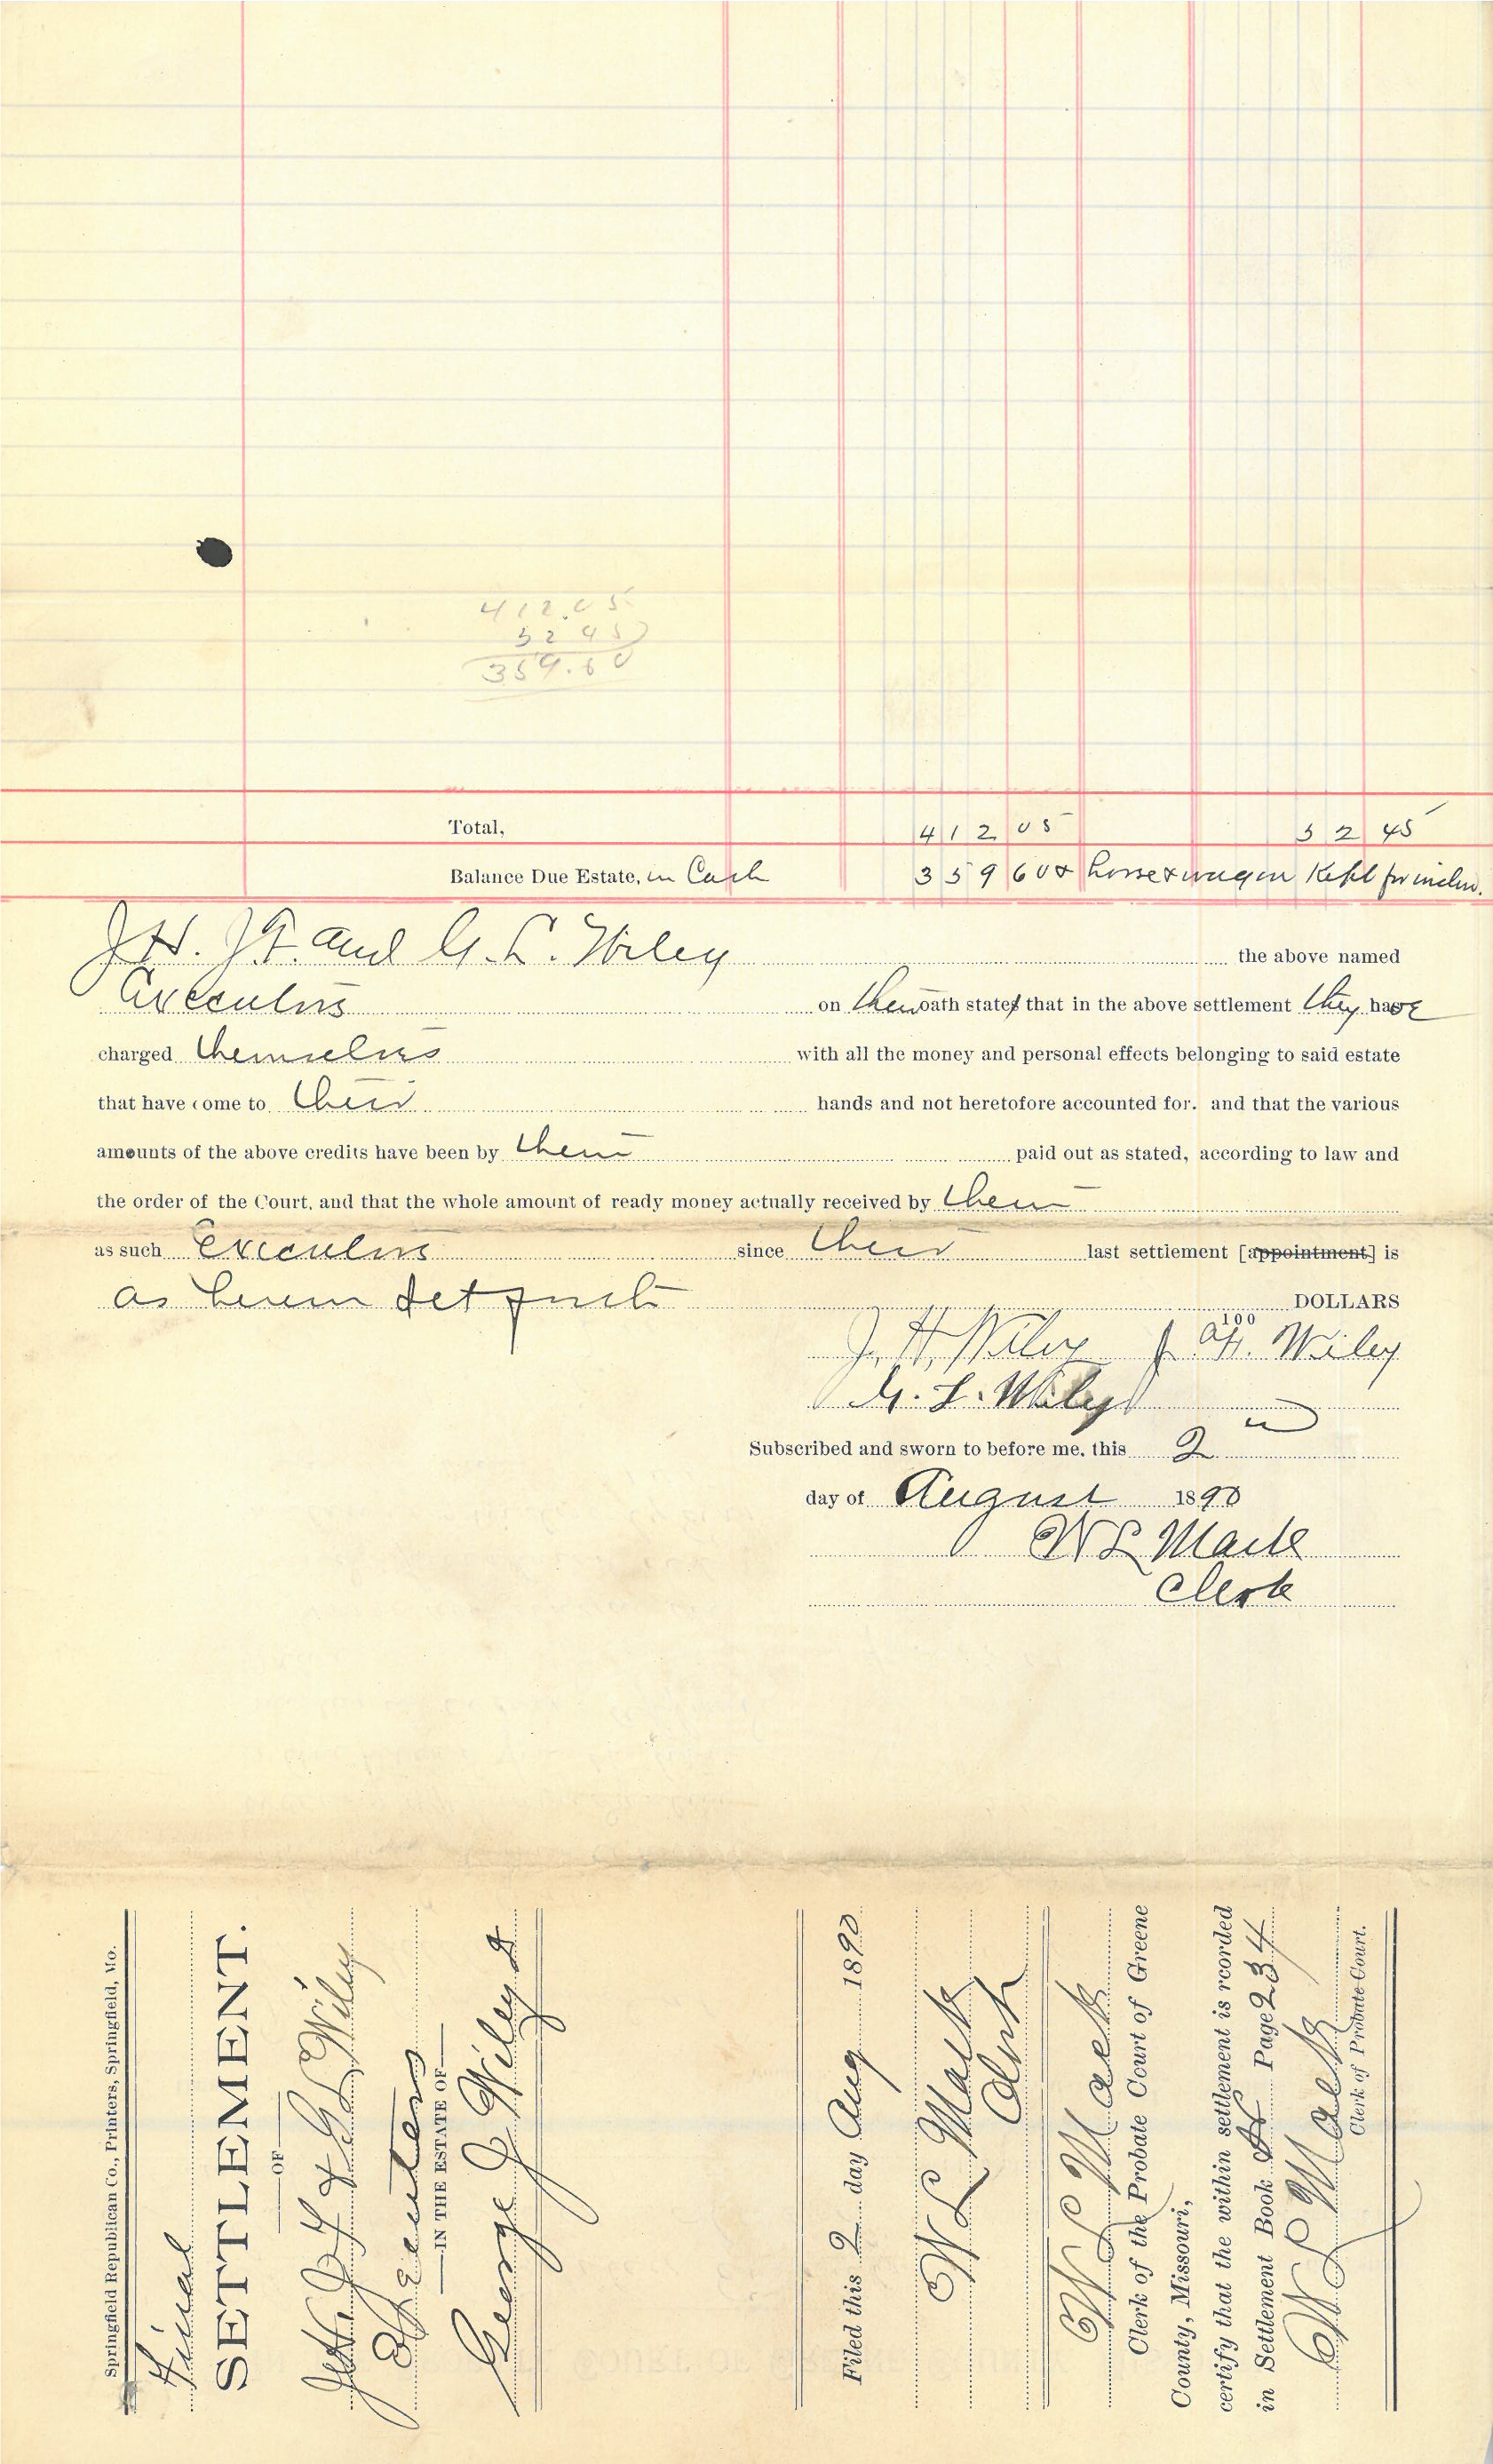 412.05
52 45
359.60
Total, 412 05 52 45
Balance Due Estate, in Cash 359 60 & horse & wagon Kept for
J H. J.F. and G. L. Wiley the above named
Executors on their oath states that in the above settlement they have
charged themselves with all the money and personal effects belonging to said estate
that have come to their hands and not heretofore accounted for. and that the various
amounts of the above credits have been by them paid out as stated, according to law and
the order of the Court, and that the whole amount of ready money actually received by them
as such Executors since their last settlement [appointment] is
as herein set forth DOLLARS
100
J. H. Wiley J. F. Wiley
G. L. Wiley
Subscribed and sworn to before me, this 2
day of August 1890
W L Mack
Clerk
Springfield Republican Co., Printers, Springfield, Mo.
Final
SETTLEMENT.
OF
J H. J F & G L Wiley
Executors
IN THE ESTATE OF
George J Wiley
Filed this 2 day Aug 1890
W L Mack
Clerk
W L Mack
Clerk of the Probate Court of Greene
County, Missouri,
certify that the within settlement is rcorded
in Settlement Book H Page 234
W L Mack
Clerk of Probate Court.